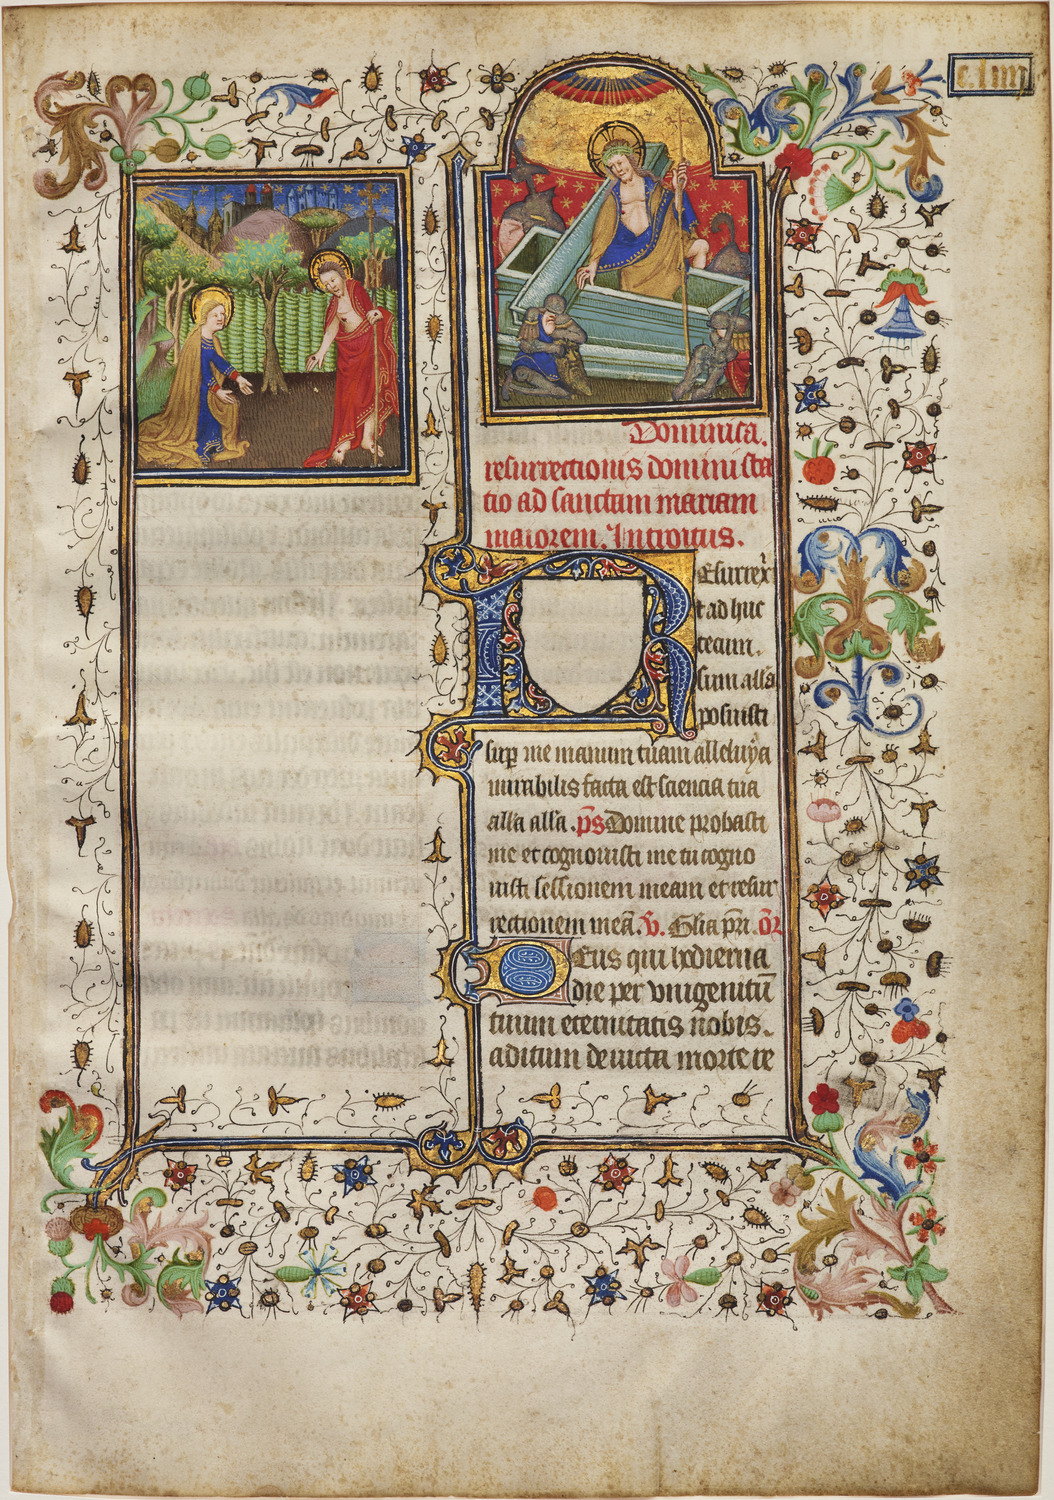 c.liiij
Dominica.
resurrectionis domini sta
tio ad sanctam mariam
maiorem. Introitus.
Resurrexi
t ad huc
tecum.
sum all'a
posuisti
sup me manum tuam alleluya
mirabilis facta est sciencia tua
all'a all'a. ps Domine probasti
me et cognouisti me tu cogno
uisti sessionem meam et resur
rectionem meā. V. Glia pri. or
Deus qui hodierna
die per vnigenitū
tuum eternitatis nobis
aditum deuicta morte re